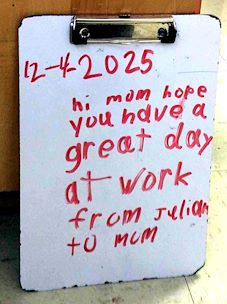 12-4-2025
hi mom hope
you have a
great day
at work
from Julian
to mom